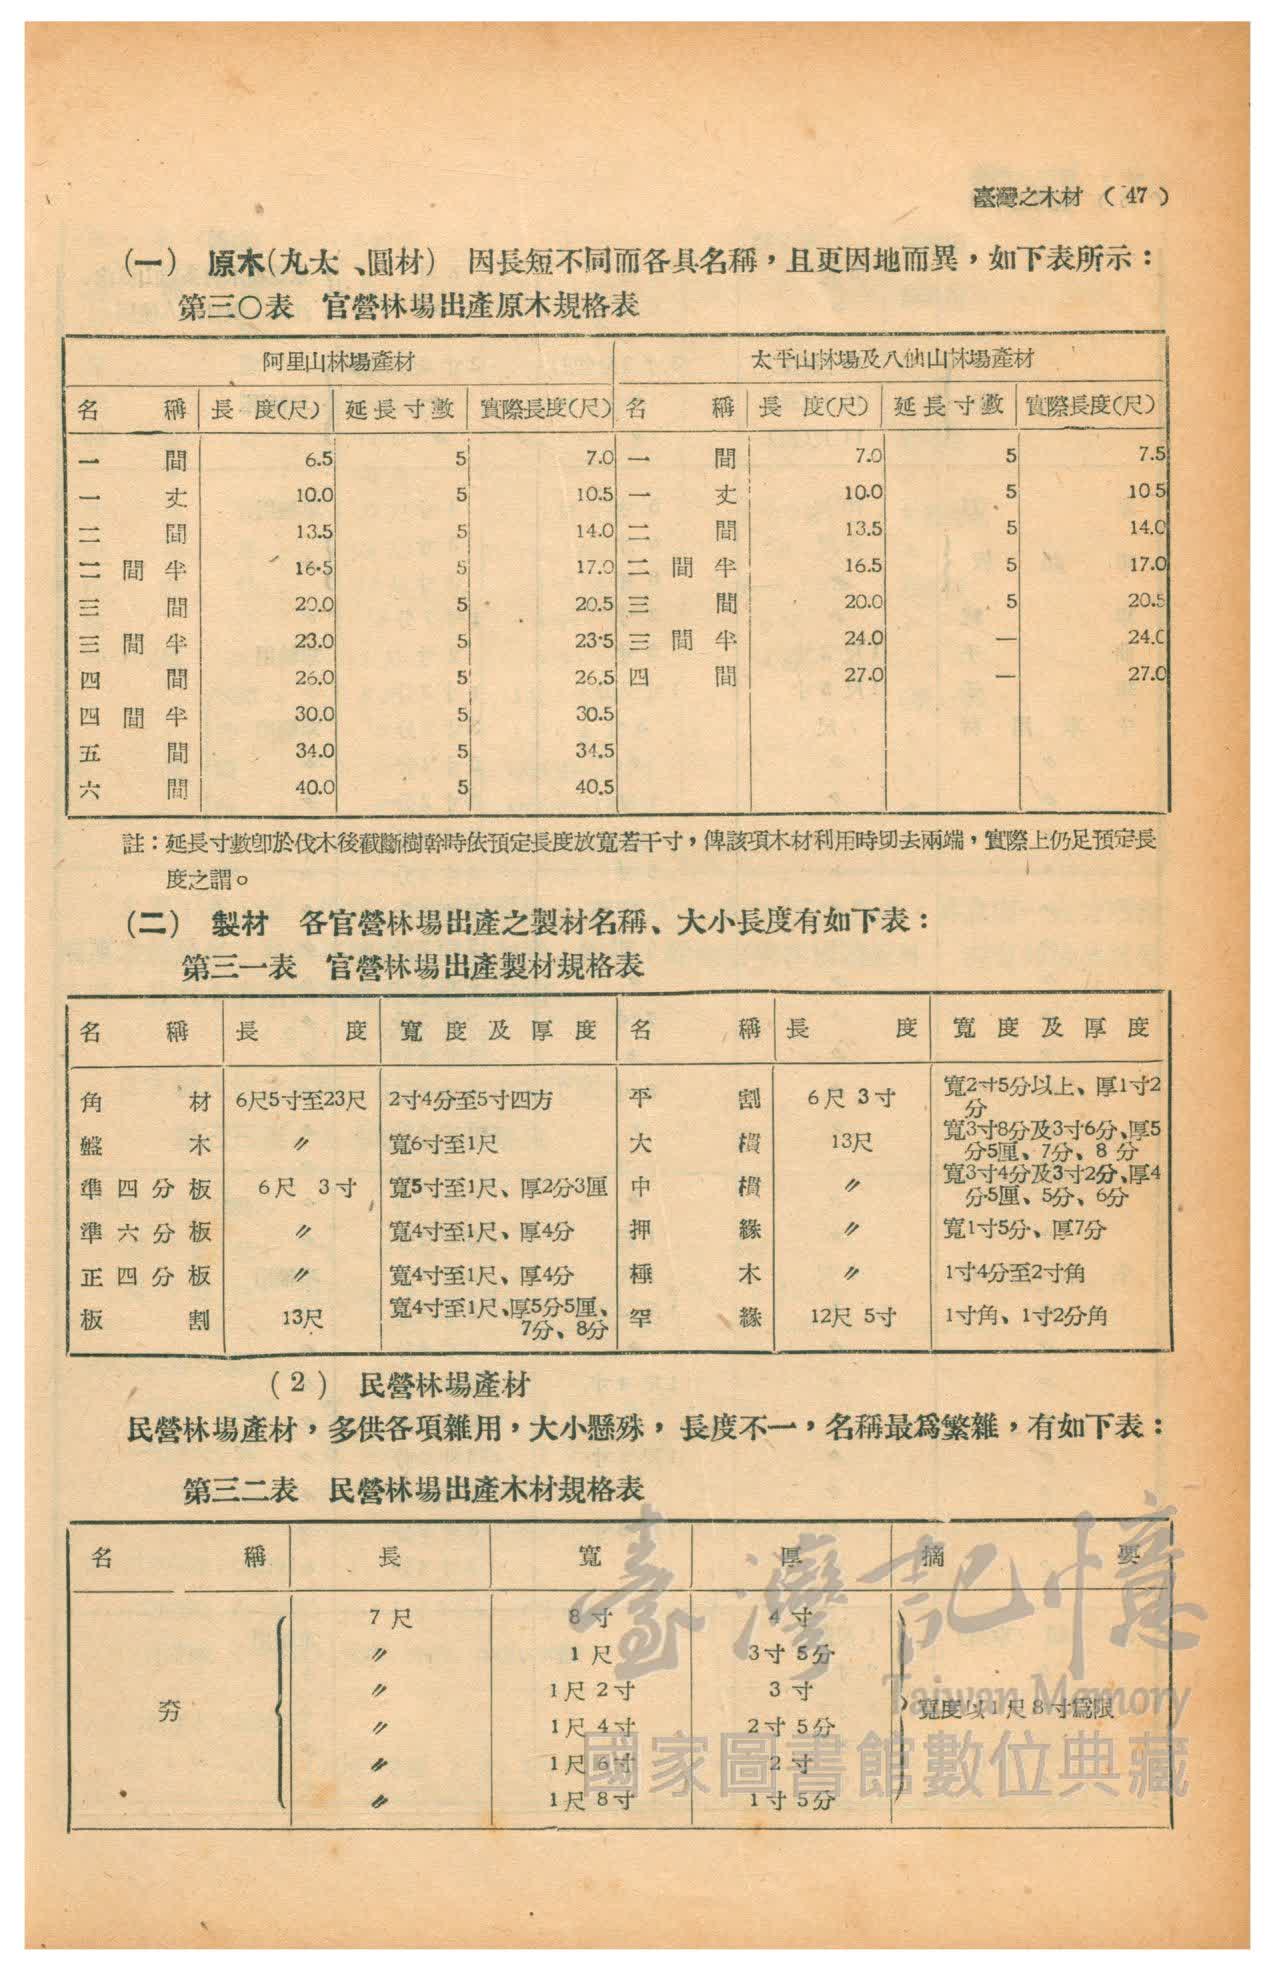 臺灣之木材 ( 47 )
(一) 原木(丸太、圓材) 因長短不同而各具名稱,且更因地而異,如下表所示:
第三〇表 官營林場出產原木規格表
阿里山林場產材 太平山林場及八仙山林場產材
名稱 長度(尺) 延長寸數 實際長度(尺) 名稱 長度(尺) 延長寸數 實際長度(尺)
一間 6.5 5 7.0 一間 7.0 5 7.5
一丈 10.0 5 10.5 一丈 10.0 5 10 5
二間 13.5 5 14.0 二間 13.5 5 14.0
二間半 16·5 5 17.0 二間半 16.5 5 17.0
三間 20.0 5 20.5 三間 20.0 5 20.5
三間半 23.0 5 23·5 三間半 24.0 — 24.0
四間 26.0 5 26.5 四間 27.0 — 27.0
四間半 30.0 5 30.5
五間 34.0 5 34.5
六間 40.0 5 40.5
註:延長寸數卽於伐木後截斷樹幹時依預定長度放寬若干寸,俾該項木材利用時切去兩端,實際上仍足預定長
度之謂。
(二) 製材 各官營林場出產之製材名稱、大小長度有如下表:
第三一表 官營林場出產製材規格表
名稱 長度 寬度及厚度 名稱 長度 寬度及厚度
角材 6尺5寸至23尺 2寸4分至5寸四方 平割 6尺 3寸 寬2寸5分以上、厚1寸2
分
盤木 〃 寬6寸至1尺 大樻 13尺 寬3寸8分及3寸6分、厚5
分5厘、7分、8分
準四分板 6尺 3寸 寬5寸至1尺、厚2分3厘 中樻 〃 寬3寸4分及3寸2分、厚4
分5厘、5分、6分
準六分板 〃 寬4寸至1尺、厚4分 押緣 〃 寬1寸5分、厚7分
正四分板 〃 寬4寸至1尺、厚4分 極木 〃 1寸4分至2寸角
板割 13尺 寬4寸至1尺、厚5分5厘、 罕緣 12尺 5寸 1寸角、1寸2分角
7分、8分
(2) 民營林場產材
民營林場產材,多供各項雜用,大小懸殊,長度不一,名稱最爲繁雜,有如下表:
第三二表 民營林場出產木材規格表
名稱 長 寬 厚 摘要
7尺 8寸 4寸
〃 1尺 3寸5分
〃 1尺2寸 3寸
夯 〃 1尺4寸 2寸5分 寬度以1尺8寸爲限
〃 1尺6寸 2寸
〃 1尺8寸 1寸5分
臺灣記憶
Taiwan Memory
國家圖書館數位典藏